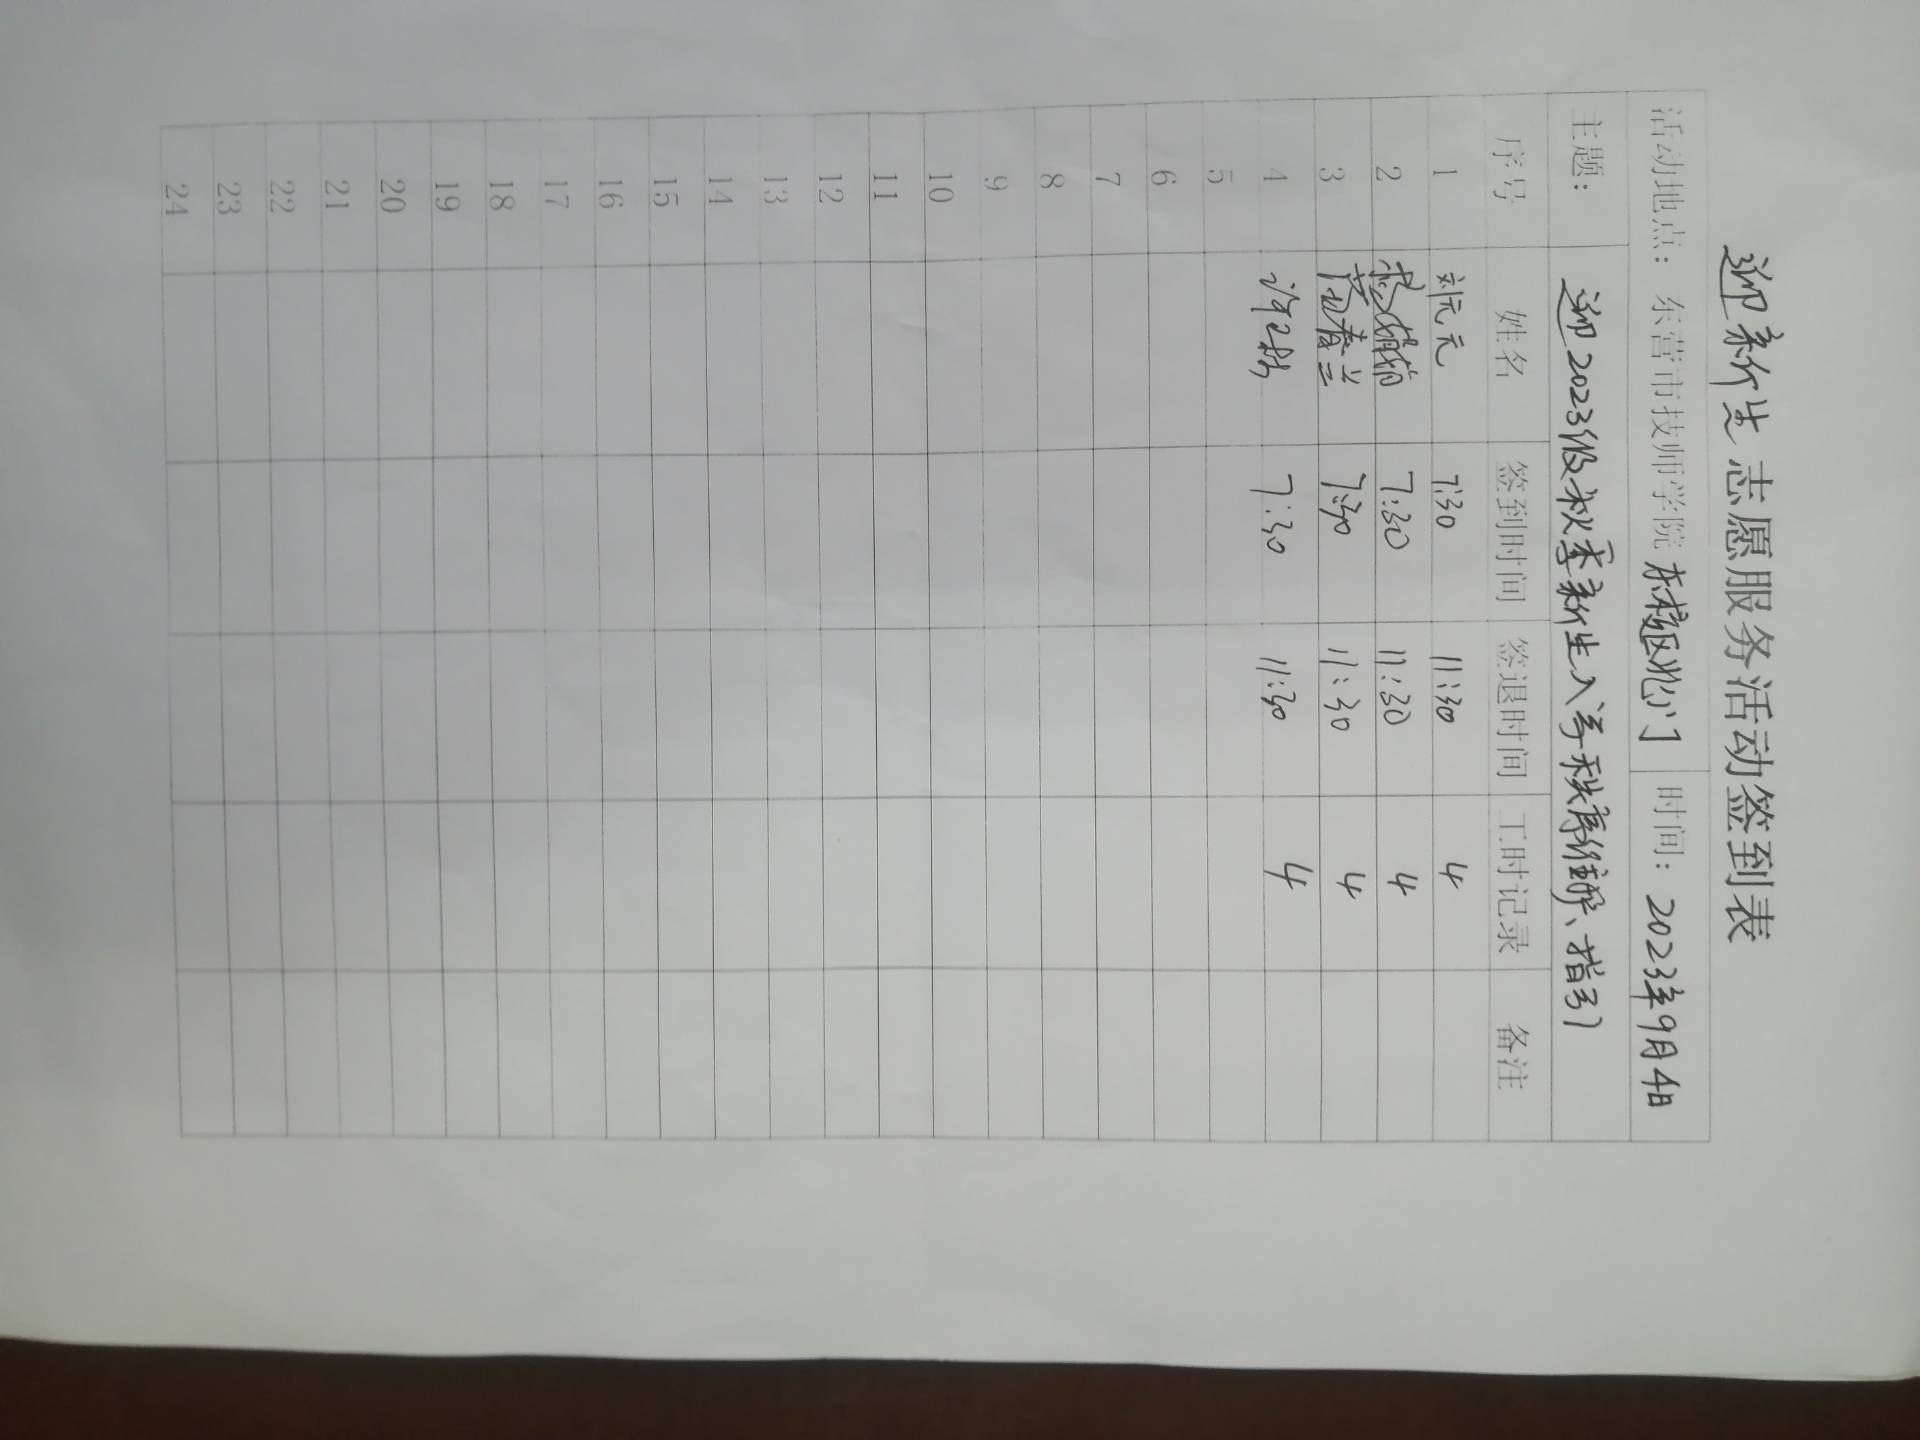 迎新生志愿服务活动签到表
活动地点：东营市技师学院东校区北门 时间：2023年9月4日
主题： 迎2023级秋季新生入学秩序维护、指引
序号 姓名 签到时间 签退时间 工时记录 备注
1 刘元元 7:30 11:30 4
2 7:30 11:30 4
3 春兰 7:30 11:30 4
4 7:30 11:30 4
5
6
7
8
9
10
11
12
13
14
15
16
17
18
19
20
21
22
23
24